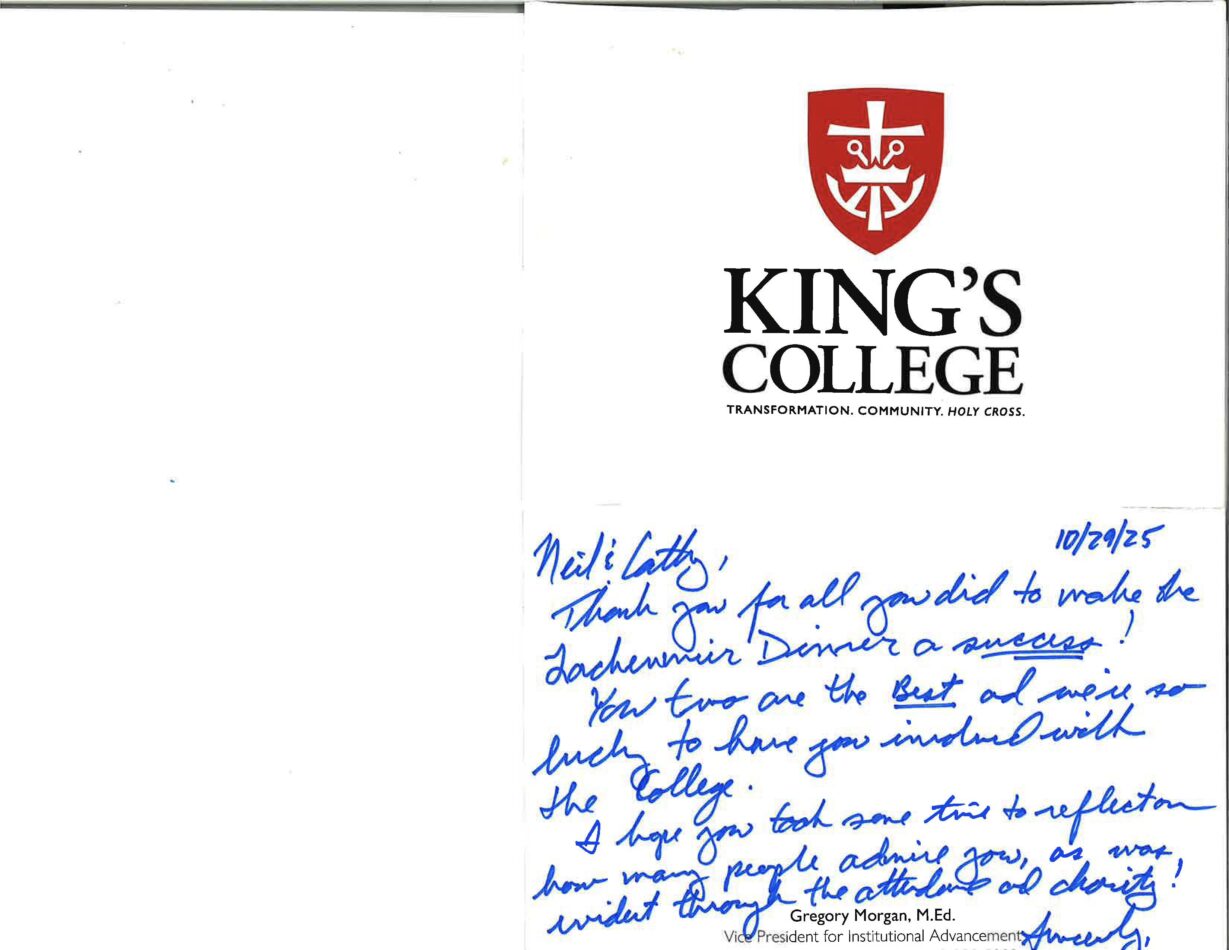 KING'S
COLLEGE
TRANSFORMATION. COMMUNITY. HOLY CROSS.
10/29/25
Neil & Cathy,
Thank you for all you did to make the
Lackenmeir Dinner a success!
You two are the Best ad we're so
lucky to have you involved with
the College.
I hope you took some time to reflect on
how many people admire you, as was
evident through the attendance ad charity!
Gregory Morgan, M.Ed.
Vice President for Institutional Advancement
Sincerely,